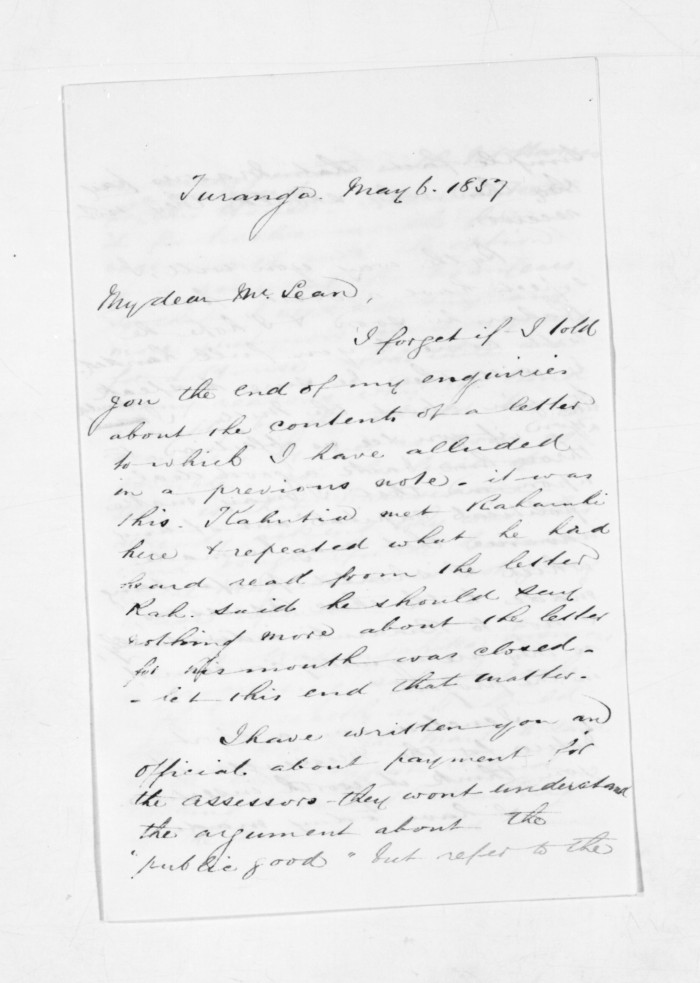 Turanga. May 6. 1857
My dear Mc Lean,
I forget if I told
you the end of my enquiries
about the contents of a letter
to which I have alluded
in a previous note - it was
this. Kahutia met
here & repeated what he had
heard read from the letter
Kah. said he should say
nothing more about the letter
for his mouth was closed -
- let this end that matter -
I have written you an
official about payment for
the assessors - they wont understand
the argument about the
"public good" but refer to the